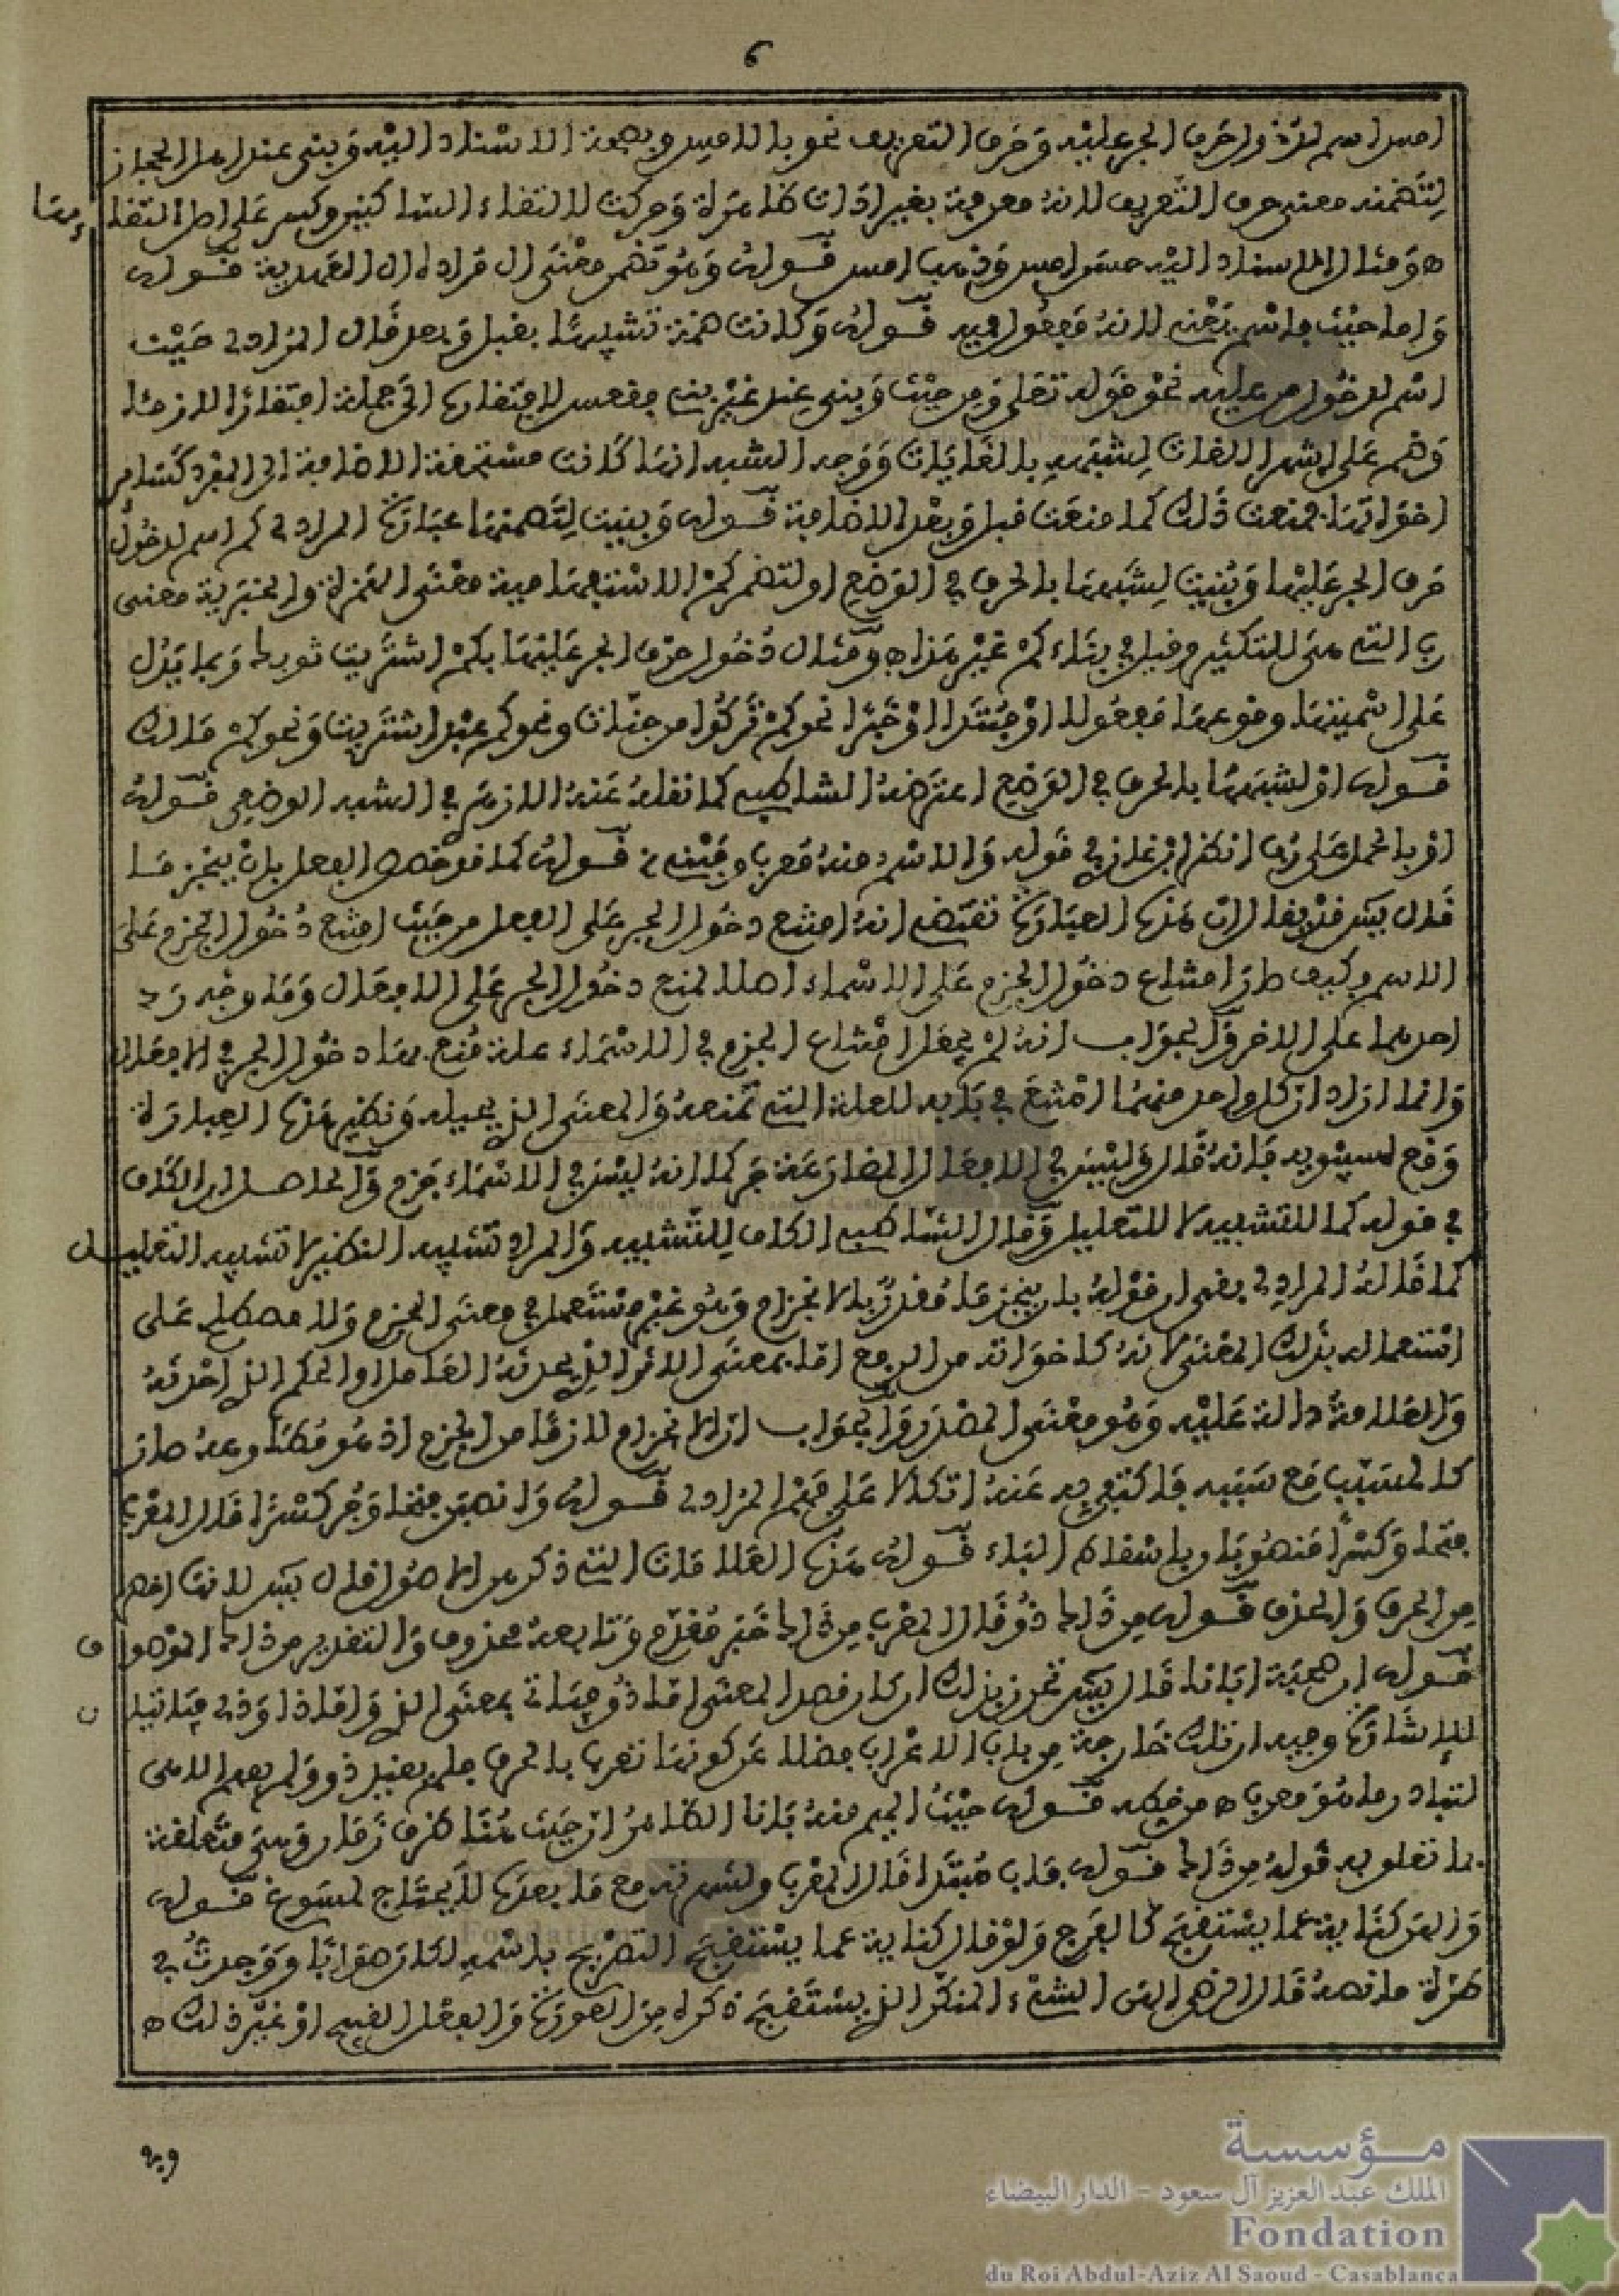 6
امس اسم لدخول حرف الجر عليه وحرف التعريف نحو بالامس وبصحة الاسناد اليه وبني عند اهل الحجاز
لتضمنه معنى حرف التعريف لانه معرفة بغير اداة ظاهرة وحركت لالتقاء الساكنين وكسر على اصل التقاء
ه ومثال الاسناد اليه حسن امس وذهب امس قوله وهو تضمن معنى ال مراده ال العهدية قوله
واما حيث فاسم بعني لانه مفعول فيه قوله وكانت ضمة تشبيها بقبل وبعد قال المرادي حيث
اسم لدخول من عليه نحو قوله تعلى ومن حيث وبني عند غير بني فقعس لافتقاره الى جملة افتقارا لازما
وضم على اشهر اللغات لشبهه بالغايات ووجه الشبه انها كانت مستحقة الاضافة الى المفرد كسائر
اخواتها فمنعت ذلك كما منعت قبل وبعد الاضافة قوله وبنيت لتضمنها عبارة المرادي كم اسم لدخول
حرف الجر عليها وبنيت لشبهها بالحرف في الوضع او لتضمن كم الاستفهامية معنى الهمزة والخبرية معنى
رب التي هي للتكثير وقيل في بناء كم غير هذا ه ومثال دخول حرف الجر عليها بكم اشتريت ثوبك وبما يدل
على اسميتها وقوعها مفعولا او مبتدا او خبرا نحو كم تركوا من جنات ونحو كم عبد اشتريت ونحو كم مالك
قوله او لشبهها بالحرف في الوضع اعترضه الشاطبي كما نقله عنه الازهري في الشبه الوضعي قوله
او بالحمل على رب انظر ابن غازي في قوله والاسم منه معرب ومبني قوله كما قد خصص الفعل بان ينجزما
قال يس قد يقال ان هذه العبارة تقتضي انه امتنع دخول الجر على الفعل من حيث امتنع دخول الجزم على
الاسم وكيف صار امتناع دخول الجزم على الاسماء اصلا لمنع دخول الجر على الافعال وما وجه رد
احدهما على الاخر والجواب انه لم يجعل امتناع الجزم في الاسماء علة منع بها دخول الجر في الافعال
وانما اراد ان كل واحد منهما امتنع في بابه للعلة التي تمنعه والمعنى الذي يحيله ونظير هذه العبارة
وقع لسيبويه فانه قال وليس في الافعال المضارعة جر كما انه ليس في الاسماء جزم والحاصل ان الكاف
في قوله كما للتشبيه لا للتعليل وقال الشاطبي الكاف للتشبيه والمراد تشبيه النظير لا تشبيه التعليل
كما قاله المرادي بقي ان قوله بان ينجزما مقدر بالانجزام وهو غير مستعمل في معنى الجزم ولا مصطلح على
استعماله بذلك المعنى لانه كاخواته من الرفع اما بمعنى الاثر الذي يحدثه العامل او الحكم الذي احدثه
والعلامة دالة عليه وهو معنى المصدر والجواب ان الانجزام لازما من الجزم اذ هو مطاوعه صار
كالمسبب مع سببه فاكتفى به عنه اتكالا على فهم المراد قوله وانصبن فتحا وجر كسرا قال المعرب
فتحا وكسرا منصوبان باسقاط الباء قوله هذه العلامات التي ذكر هي الاصول قال يس لانها اخص
من الحرف والحذف قوله من ذاك ذو قال المعرب من ذاك خبر مقدم وتابعه محذوف والتقدير من ذاك الموصوف
قوله ان صحبة ابانا قال يس تحرز بذلك ان كان قصد المعنى اما ذو فهي اما بمعنى الذي واما ذا وذي فياتيان
للاشارة وفيه ان تلك خارجة من باب الاعراب فضلا عن كونها تعرب بالحرف فلم يقيد ذو ولم يعمم الامن
لتبادر ما هو معرب ه من خطه قوله حيث الميم منه بانا الظاهر ان حيث هنا ظرف زمان وهي متعلقة
بما تعلق به قوله من ذاك قوله باب مبتدا قال المعرب ولشهرته مع ما بعدها لا يحتاج لمسوغ قوله
والهن كناية عما يستقبح كالفرج ولو قال كناية عما يستقبح التصريح باسمه لكان صوابا ووجدت في
طرة ما نصه قال الازهري الهن الشيء المنكر الذي يستقبح ذكره من العورة والفعل القبيح او غير ذلك ه
وبه
مؤسسة
الملك عبد العزيز آل سعود - الدار البيضاء
Fondation
du Roi Abdul-Aziz Al Saoud - Casablanca